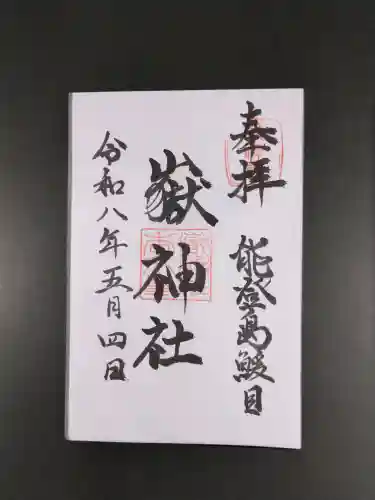 奉拝
能登島鰀目
嶽神社
令和八年五月四日